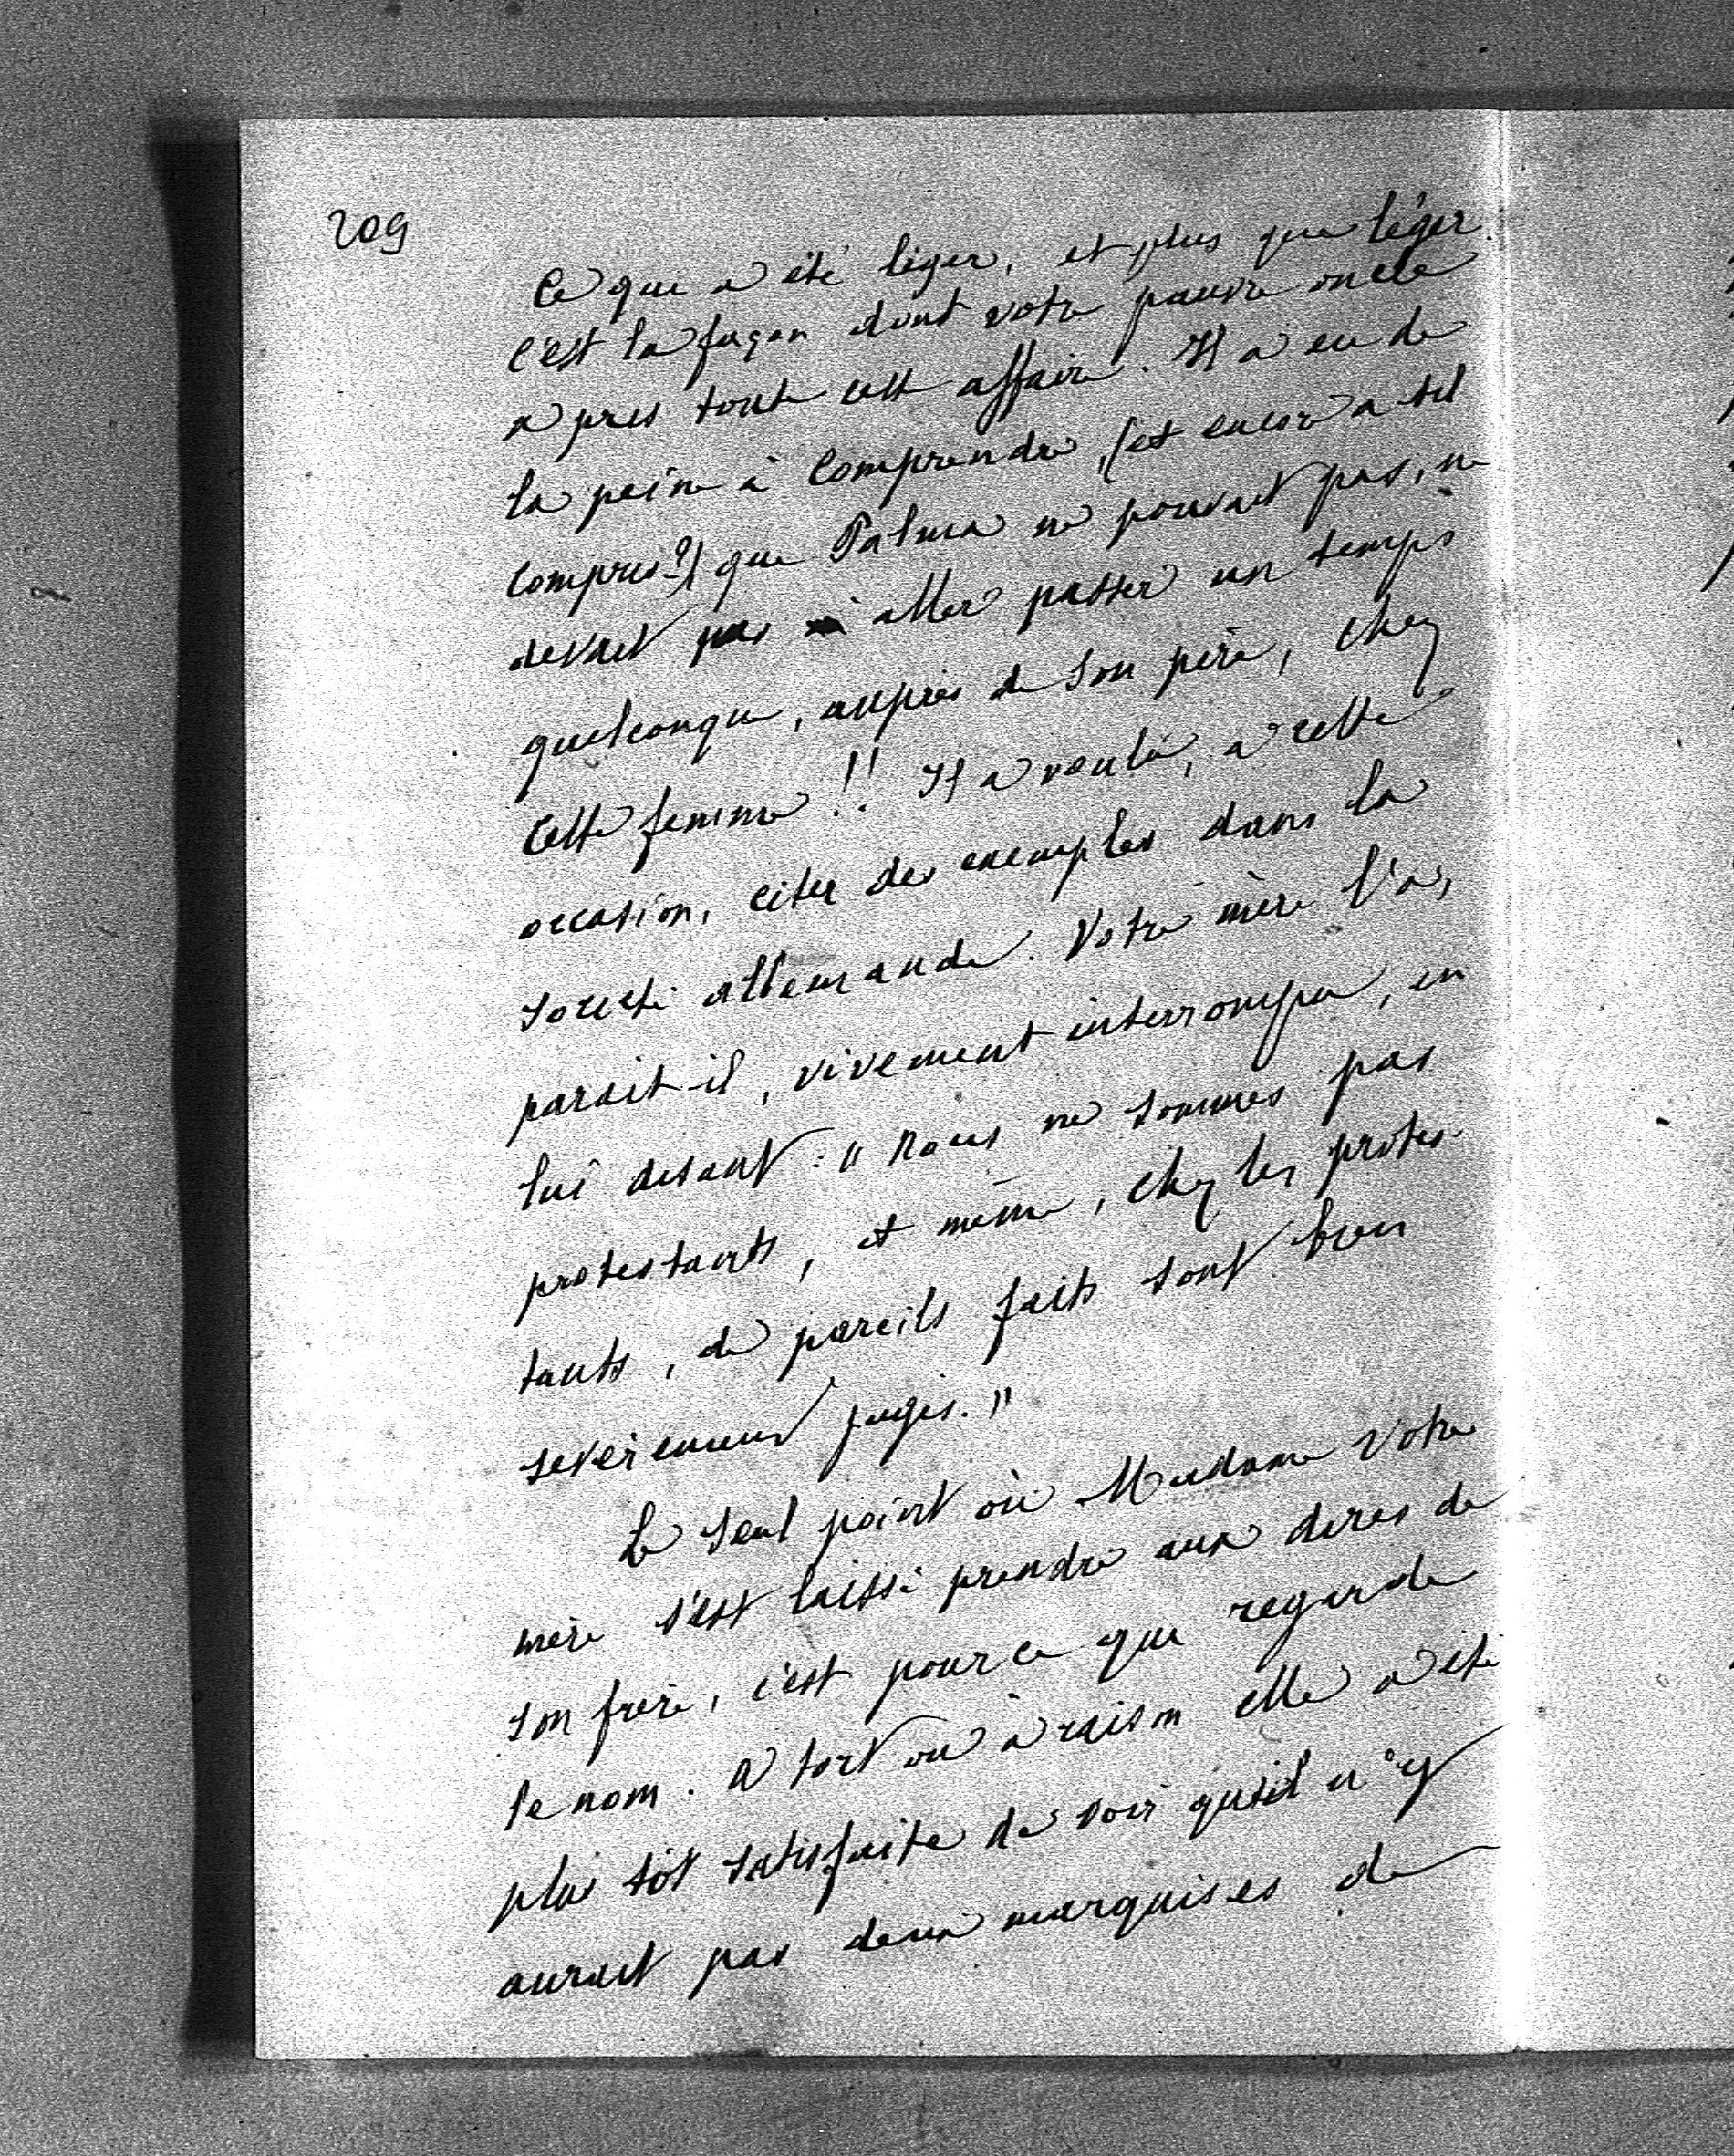 209
Ce qui a été léger, et plus que léger.
c'est la façon dont votre pauvre oncle
a pris toute cette affaire. Il a eu de
la peine à comprendre, (et encore a til
compris?) que Palma ne pouvait pas, ne
devait pas aller passer un temps
quelconque, auprès de son père, chez
cette femme!! Il a voulu, a cette
occasion, citer des exemples dans la
société allemande. Votre mère l'a,
parait-il, vivement interrompu, en
lui disant: "nous ne sommes pas
protestants, et même, chez les protes-
tants, de pareils faits sont bien
sevérement jugés."
Le seul point où Madame Votre
mère s'est laissé prendre aux dires de
son frère, c'est pour ce que regarde
le nom. A tort ou à raison elle a été
plus tôt satisfaite de voir qu'il n'y
aurait pas deux marquises de